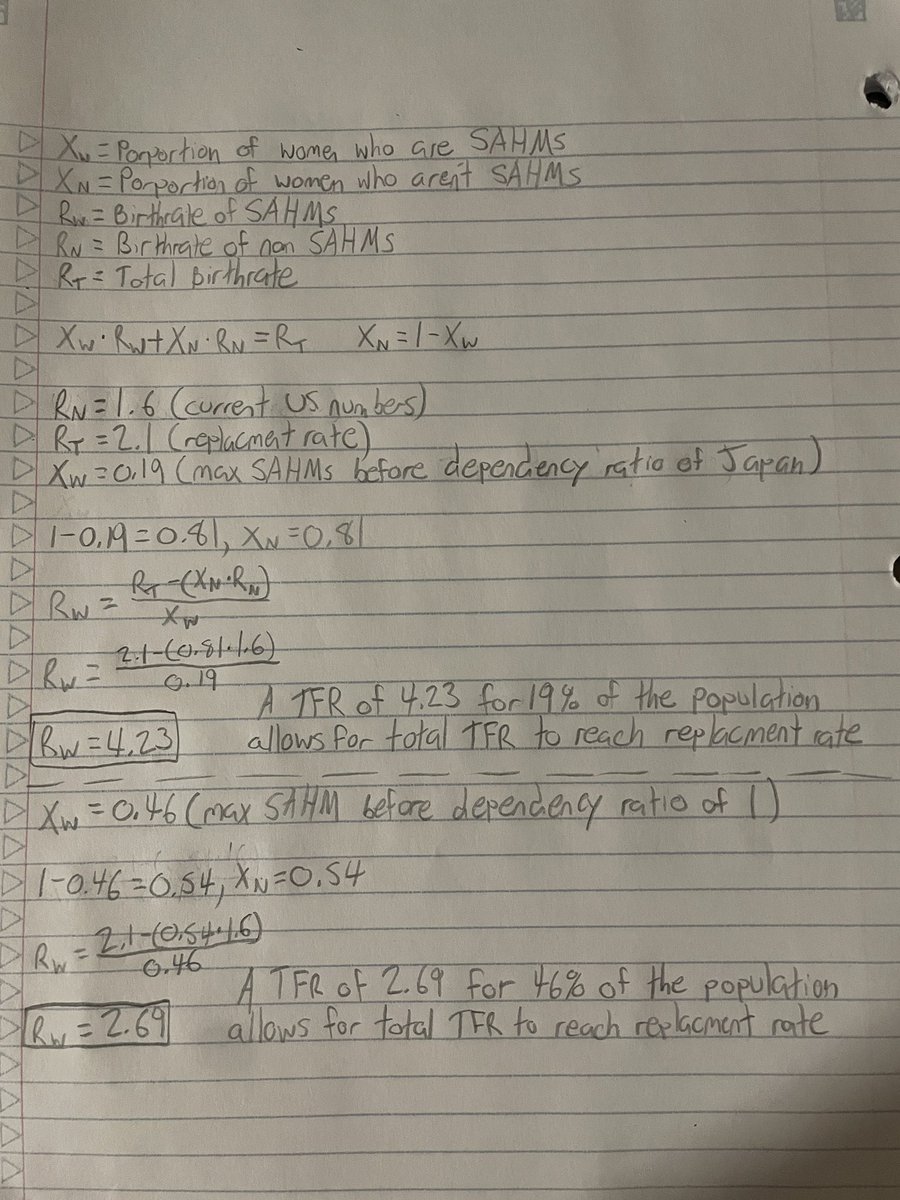 Xw = Porportion of women who are SAHMs
XN = Porportion of women who aren't SAHMs
Rw = Birthrate of SAHMs
RN = Birthrate of non SAHMs
RT = Total birthrate
Xw·Rw+XN·RN=RT XN=1-Xw
RN=1.6 (current US numbers)
RT=2.1 (replacment rate)
Xw=0.19 (max SAHMs before dependency ratio of Japan)
1-0.19=0.81, XN=0.81
Rw = RT-(XN·RN)/Xw
Rw = 2.1-(0.81·1.6)/0.19
A TFR of 4.23 for 19% of the population
Rw=4.23 allows for total TFR to reach replacment rate
Xw=0.46 (max SAHM before dependency ratio of 1)
1-0.46=0.54, XN=0.54
Rw = 2.1-(0.54·1.6)/0.46
A TFR of 2.69 for 46% of the population
Rw=2.69 allows for total TFR to reach replacment rate